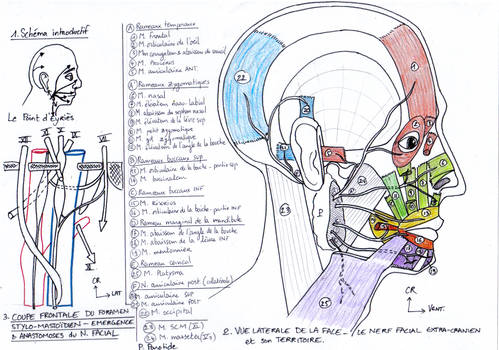 1. Schéma introductif
Le Point d'Eyriès
A Rameaux temporaux
1 M. Frontal
2 M. orbiculaire de l'oeil
4 M. Procérus
5 M. auriculaire ANT.
A' Rameaux zygomatiques
6 M. nasal
7 M. élévateur naso-labial
8 M. abaisseur du septum nasal
9 M. élévateur de la lèvre sup
10 M. petit zygomatique
11 M. gd zygomatique
12 M. élévateur de l'angle de la bouche
B Rameaux buccaux sup
13 M. orbiculaire de la bouche - partie sup
14 M. buccinateur
C Rameaux buccaux INF
15 M. Risorius
16 M. orbiculaire de la bouche - partie INF
D Rameau marginal de la mandibule
17 M. abaisseur de l'angle de la bouche
18 M. abaisseur de la lèvre INF
19 M. mentonnier
E Rameau cervical
25 M. Platysma
F N. auriculaire post (collatérale)
M. auriculaire sup
M. auriculaire post
22 M. occipital
23 M. SCM (XI)
24 M. masséter (V3)
P. Parotide
22
23
25
P
1
CR
LAT
CR
VENT.
VII
IX
X
V
VII
XI
3. COUPE FRONTALE DU FORAMEN
STYLO-MASTOÏDIEN - EMERGENCE
& ANASTOMOSES DU N. FACIAL
2. VUE LATERALE DE LA FACE - LE NERF FACIAL EXTRA-CRANIEN
et son TERRITOIRE.